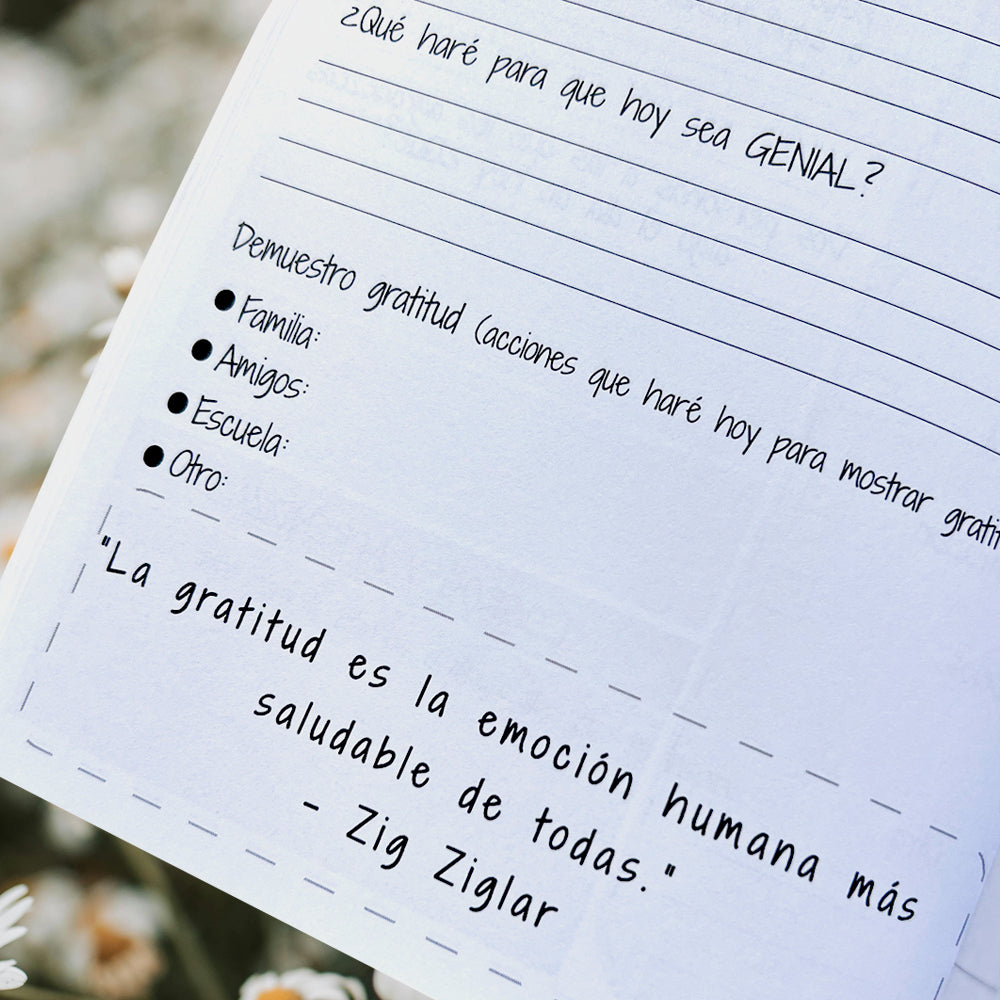 ¿Qué haré para que hoy sea GENIAL?
Demuestro gratitud (acciones que haré hoy para mostrar
● Familia:
● Amigos:
● Escuela:
● Otro:
"La gratitud es la emoción humana más
saludable de todas."
- Zig Ziglar